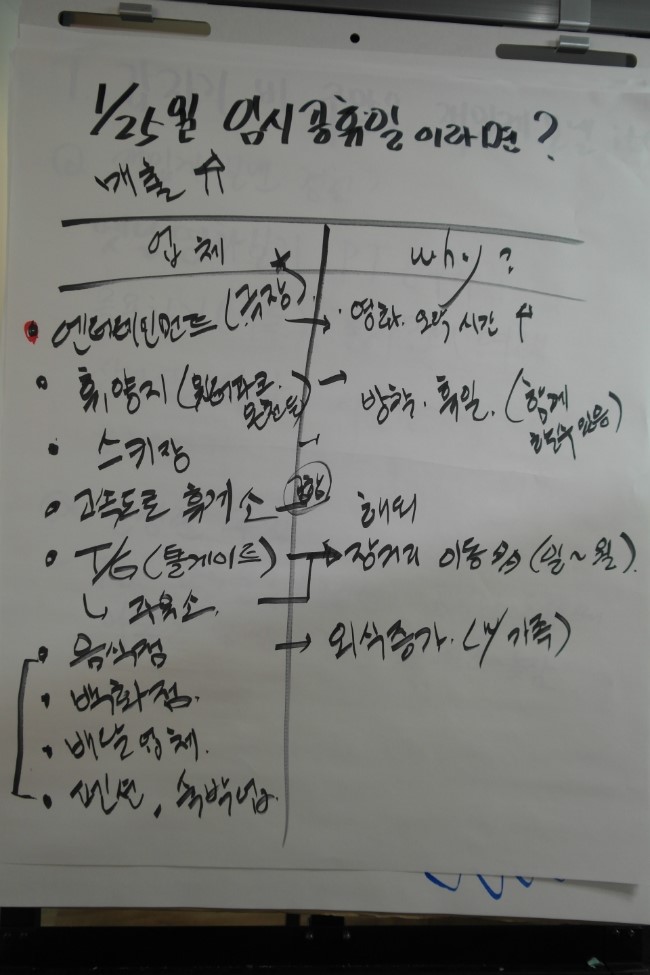 1/25일 임시공휴일이라면?
매출 ↑
업체 ★ why?
• 엔터테인먼트 (극장) → • 영화. 오락 시간 ↑
• 휴양지 ( → 방학. 휴일. (함께
• 스키장
• 고속도로 휴게소 공항 해외
• T/G (톨게이트) → 장거리 이동 (일~월).
↳ 주유소.
• 음식점 → 외식증가. (w/ 가족)
• 백화점.
• 배달업체.
• 펜션, 숙박업.